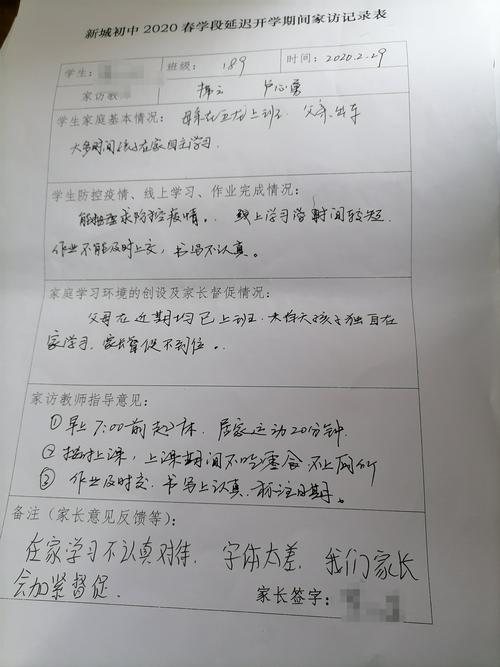 新城初中 2020 春学段延迟开学期间家访记录表
学生： 班级： 189 时间：2020.2.29
家访教师 韩云 卢心勇
学生家庭基本情况： 母亲在五龙上班， 父亲 出车
大多时间孩子在家自主学习.
学生防控疫情、线上学习、作业完成情况：
能按要求防控疫情。. 线上学习学时间较短.
作业不能及时上交，书写不认真。
家庭学习环境的创设及家长督促情况：
父母在近期均已上班. 孩子独自在
家学习. 家长督促不到位。.
家访教师指导意见：
①早上7:00前起床. 居家运动20分钟.
② 按时上课，上课期间不吃零食.不上网聊
③ 作业及时交. 书写上认真. 标注日期。
备注（家长意见反馈等）：
在家学习不认真对待. 字体太差. 我们家长
会加紧督促.
家长签字：